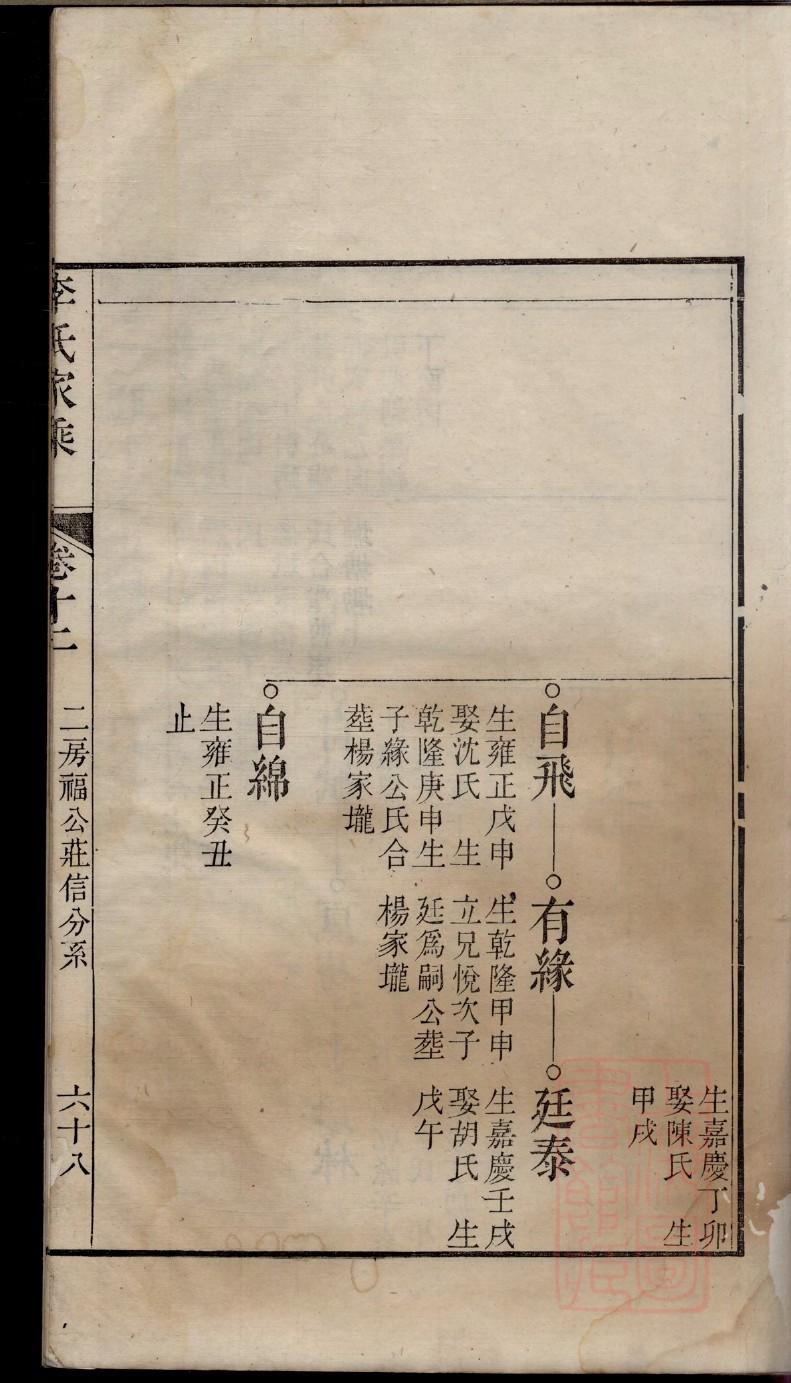 生嘉慶丁卯
娶陳氏 生
甲戌
自飛
生雍正戊申
娶沈氏 生
乾隆庚申生
子緣公氏合
塟楊家壠
有緣
生乾隆甲申
立兄悅次子
廷爲嗣公塟
楊家壠
廷泰
生嘉慶壬戌
娶胡氏 生
戊午
自綿
生雍正癸丑
止
李氏家乘
卷十二
二房福公莊信分系
六十八